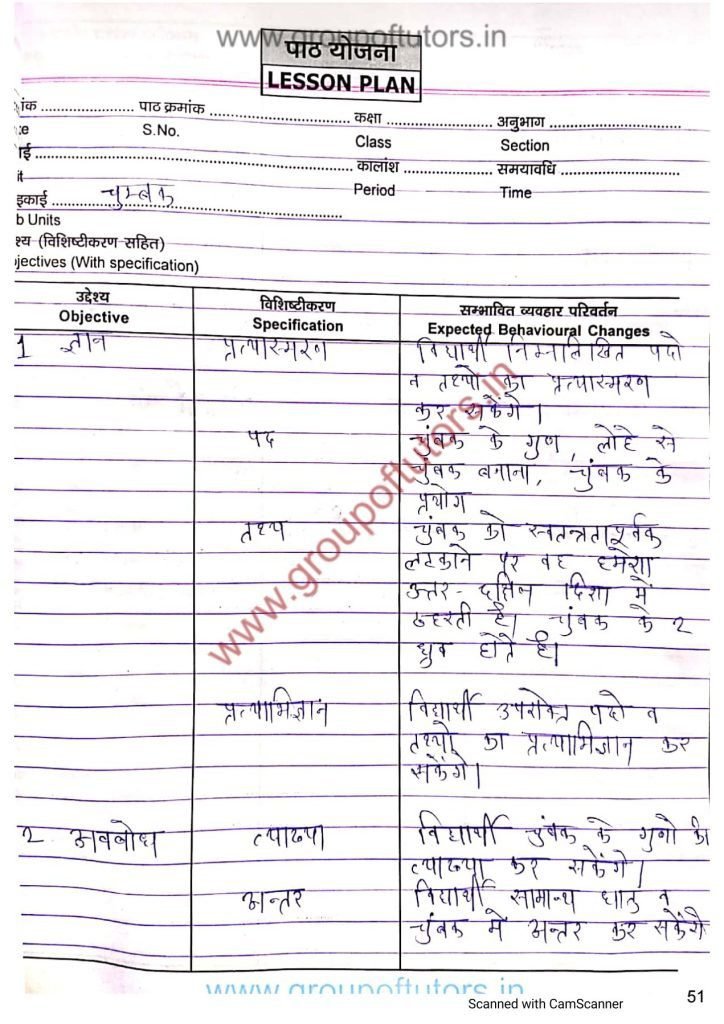 www.groupoftutors.in
पाठ योजना
LESSON PLAN
ांक .................... पाठ क्रमांक .................... कक्षा .................... अनुभाग ....................
te S.No. Class Section
ाई .................... कालांश .................... समयावधि ....................
it Period Time
इकाई चुम्बक
b Units
श्य (विशिष्टीकरण सहित)
jectives (With specification)
उद्देश्य विशिष्टीकरण सम्भावित व्यवहार परिवर्तन
Objective Specification Expected Behavioural Changes
1 ज्ञान प्रत्यास्मरण विद्यार्थी निम्नलिखित पदो
व तथ्यो का प्रत्यास्मरण
कर सकेंगे।
पद चुंबक के गुण, लोहे से
चुंबक बनाना, चुंबक के
प्रयोग
तथ्य चुंबक को स्वतन्त्रतापूर्वक
लटकाने पर वह हमेशा
उत्तर - दक्षिण दिशा में
ठहरती है। चुंबक के २
ध्रुव होते है।
प्रत्याभिज्ञान विद्यार्थी उपरोक्त पदो व
तथ्यो का प्रत्याभिज्ञान कर
सकेंगे।
2 अवबोध व्याख्या विद्यार्थी चुंबक के गुणो की
व्याख्या कर सकेंगे।
अन्तर विद्यार्थी सामान्य धातु व
चुंबक में अन्तर कर सकेंगे
www.groupoftutors.in
www.groupoftutors.in
Scanned with CamScanner
51